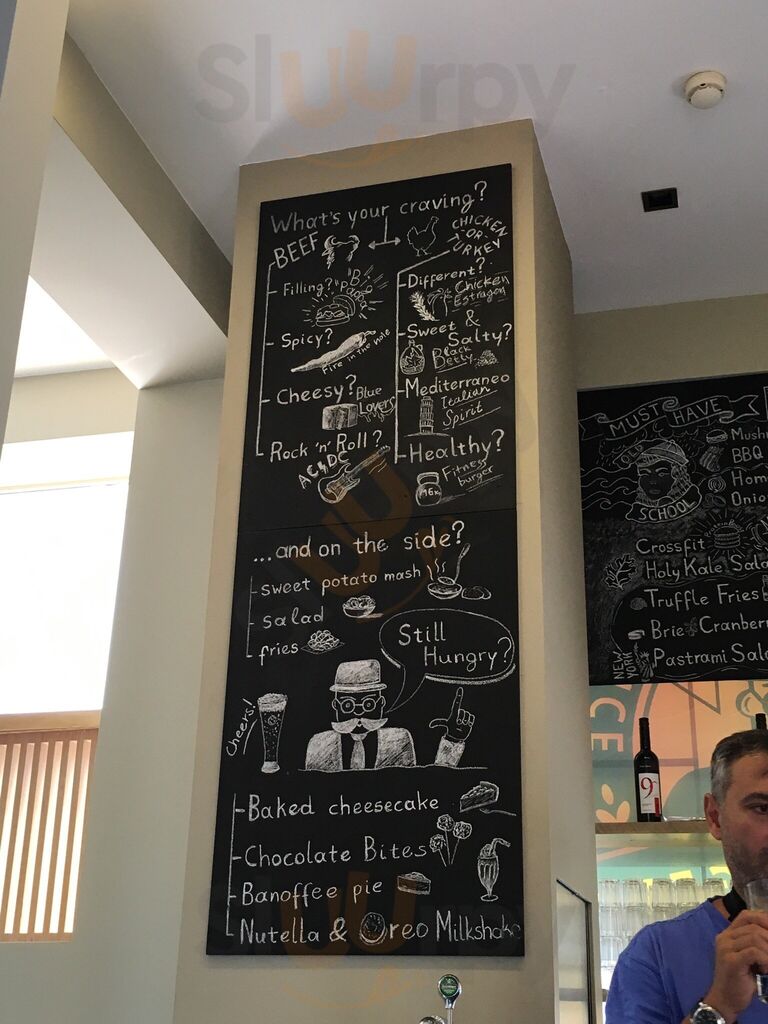 Sluurpy
What's your craving?
BEEF
CHICKEN
OR
TURKEY
Filling? "B.
Different?
Chicken
Estragon
Spicy?
Fire in the hole
Sweet &
Salty?
Black
Betty
Cheesy? Blue
Lovers
Mediterraneo
Italian
Spirit
Rock 'n' Roll?
AC/DC
Healthy?
Fitness
burger
16K
...and on the side?
sweet potato mash
salad
fries
Still
Hungry?
Cheers!
Baked cheesecake
Chocolate Bites
Banoffee pie
Nutella & Oreo Milkshake
MUST HAVE
OLD
SCHOOL
Mush
BBQ
Hom
Onio
Crossfit
Holy Kale Sala
Truffle Fries
Brie Cranber
NEW
YORK
Pastrami Sala
CE
9
Sluurpy